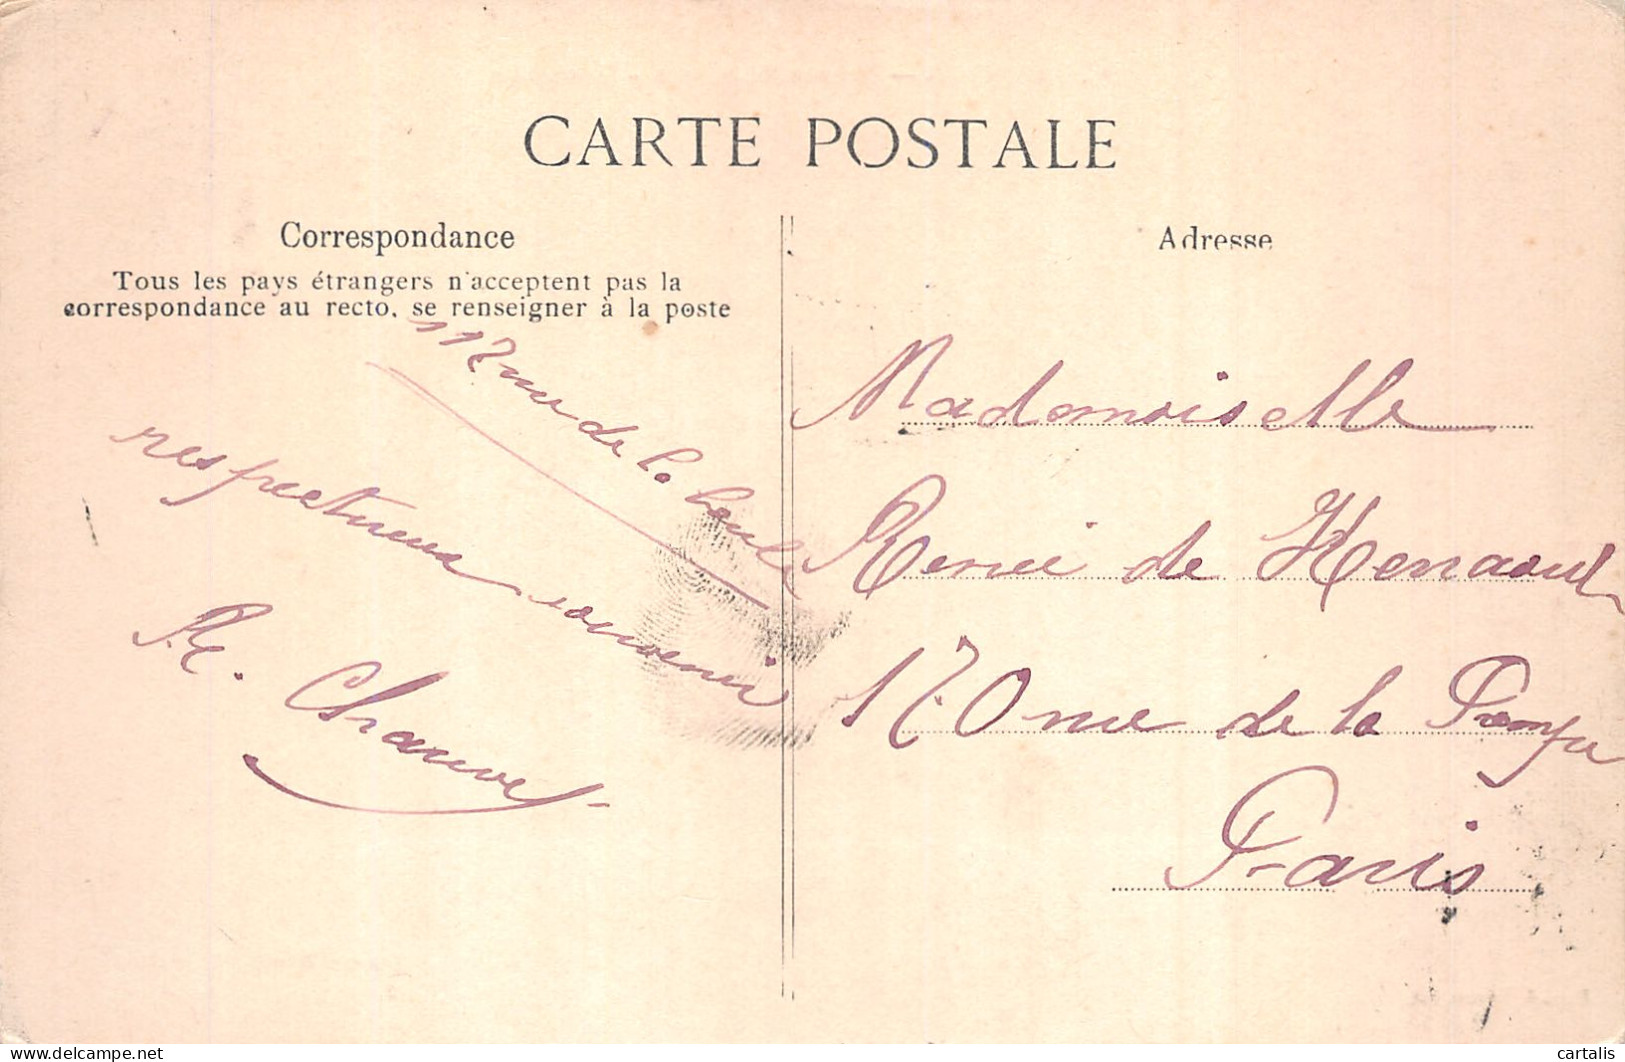 CARTE POSTALE
Correspondance
Tous les pays étrangers n'acceptent pas la
correspondance au recto, se renseigner à la poste
117 rue de la
respectueux souvenir
Chauvel
Adresse
Mademoiselle
Renée de
170 rue de la Pompe
Paris
delcampe.net
cartalis